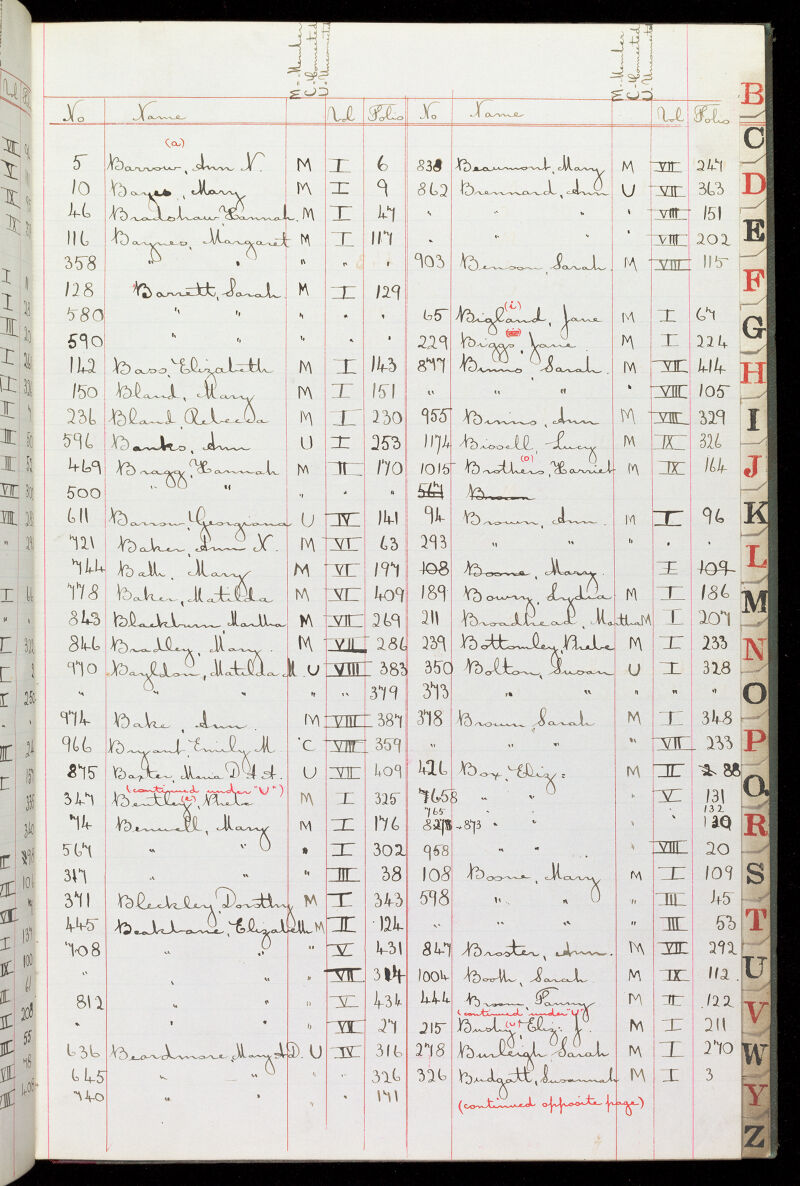 M = Member
C = Connected
U = Unconnected
M = Member
C = Connected
U = Unconnected
No Name Vol Folio
(a)
5 Barrow, Ann N. M I 6
10 Bayes, Mary M I 9
46 Bradshaw Hannah. M I 47
116 Baynes, Margaret M I 117
358 " " " " "
128 Barrett, Sarah. M I 129
580 " " " " "
590 " " " " "
142 Bass, Elizabeth M I 143
150 Bland, Mary M I 151
236 Bland, Rebecca M I 230
596 Banks, Ann U I 253
469 Bragg, Hannah M II 170
500 " " " " "
611 Barrow, Georgiana U IV 141
721 Baker, Ann N. M VI 63
744 Bath, Mary M VI 197
778 Baker, Matilda M VI 409
843 Blackburn, Martha M VII 269
846 Bradley, Mary. M VII 286
970 Bayldon, Matilda M. U VIII 383
" " " " " 379
974 Bake, Ann. M VIII 387
966 Bryant, Emily M. C VIII 359
875 Baxter, Maria D. A. A. U VII 409
(continued under "U")
347 Bentley, Phebe M I 325
(e)
74 Benwell, Mary M I 176
567 " " " I 302
317 " " " III 38
371 Bleckley, Dorothy M I 343
445 Beakbane, Elizabeth M II 124
708 " " " V 431
" " " " VII 314
812 " " " V 434
" " " " VII 27
636 Beardmore, Mary A D. U IV 316
645 " " " " 326
740 " " " " 141
No Name Vol Folio
838 Beaumont, Mary M VII 247
862 Brennard, Ann U VII 363
" " " " VIII 151
" " " " VIII 202
903 Benson, Sarah. M VIII 115
(i)
65 Bigland, Jane M I 67
229 Biggs, Jane. M I 224
877 Binns, Sarah. M VII 414
" " " " VIII 105
955 Binns, Ann M VIII 329
1174 Bissell, Lucy M IX 326
1015 Brothers, Harriet M IX 164
(o)
567 Brown
94 Brown, Ann. M I 96
293 " " " " "
108 Boone, Mary. I 109
189 Bowry, Lydia M I 186
211 Broadhead, Martha M I 207
239 Bottomley, Phebe M I 233
350 Bolton, Susan U I 328
373 " " " " "
378 Brown, Sarah M I 348
" " " " VII 233
426 Box, Eliz: M II 88
7658 " " " V 131
765 132
873 " "
958 " " VIII 20
108 Boone, Mary M I 109
598 " " " III 45
" " " " III 53
847 Broster, Ann. M VII 292
1004 Booth, Sarah M IX 112
444 Broom, Fanny M II 122
(continued under "U")
215 Busby, Eliz: J. M I 211
(u)
278 Burleigh Sarah M I 270
326 Budgett, Susannah M I 3
(continued opposite page)
B
C
D
E
F
G
H
I
J
K
L
M
N
O
P
Q
R
S
T
U
V
W
Y
Z